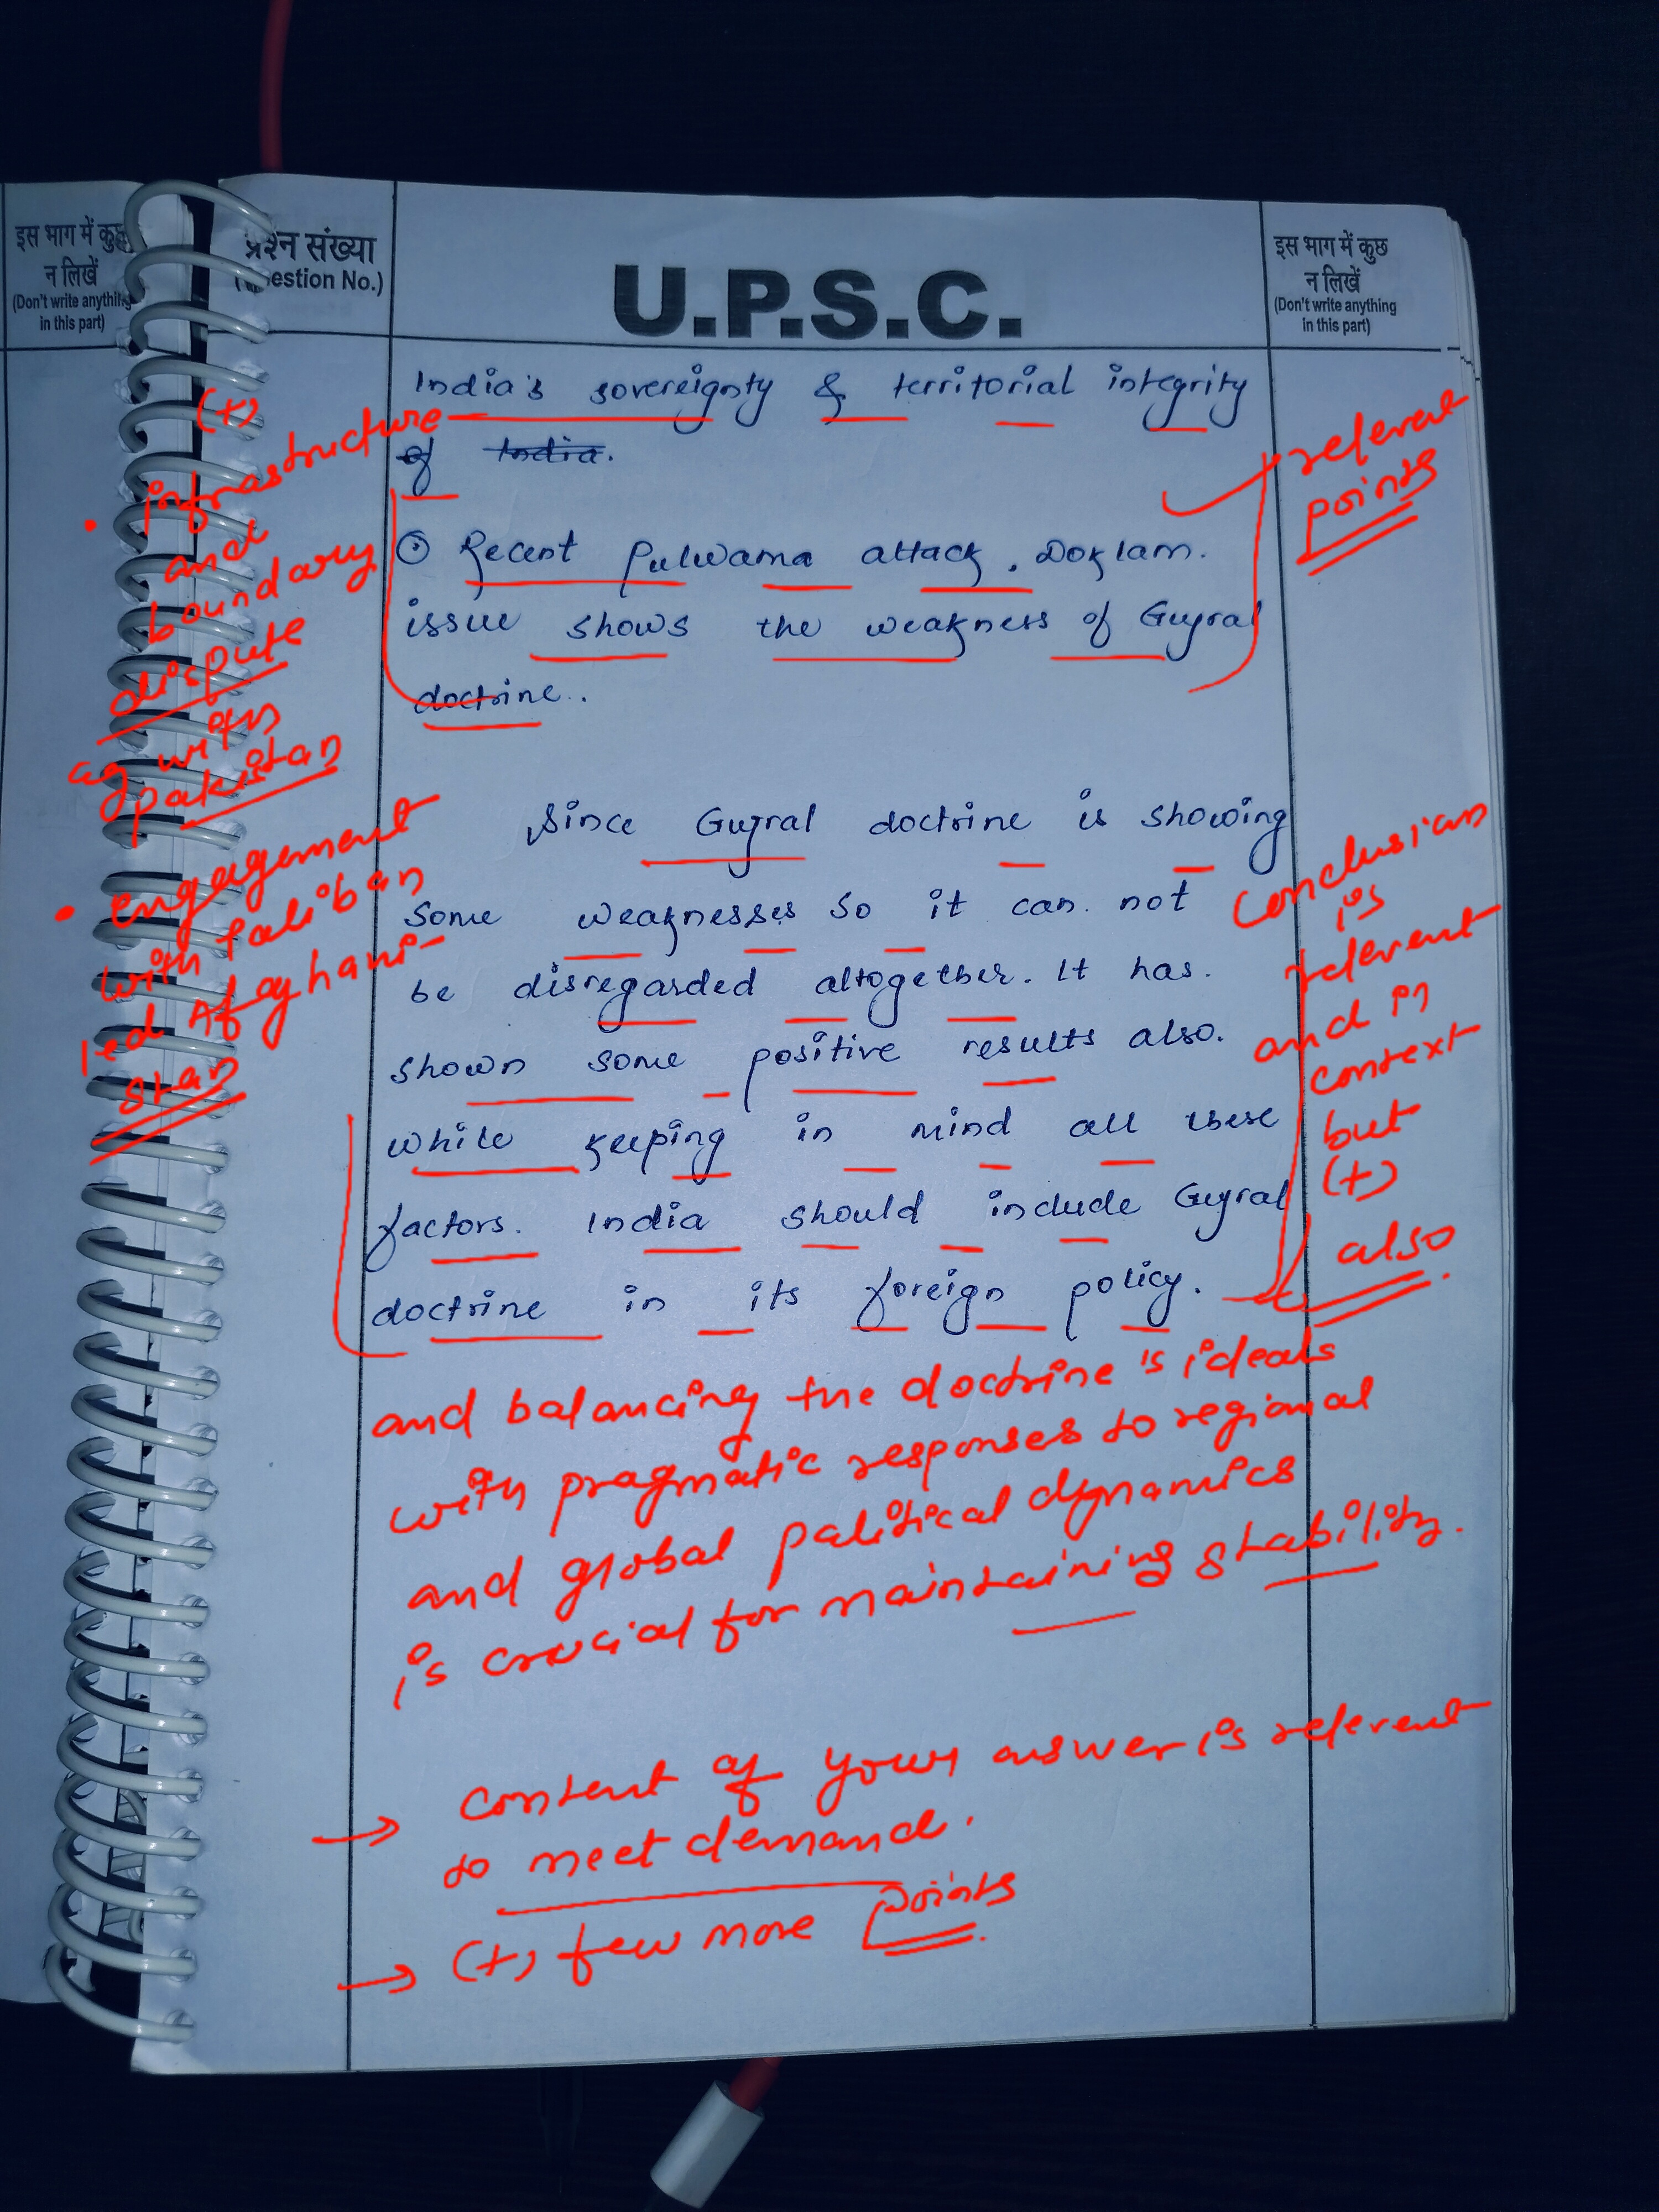 इस भाग में कुछ
न लिखें
(Don't write anything
in this part)
प्रश्न संख्या
(Question No.)
U.P.S.C.
इस भाग में कुछ
न लिखें
(Don't write anything
in this part)
India's sovereignty & territorial integrity
of India.
⊙ Recent Pulwama attack, Doklam.
issue shows the weakness of Gujral
doctrine..
Since Gujral doctrine is showing
some weaknesses so it can not
be disregarded altogether. It has.
shown some positive results also.
while keeping in mind all these
factors. India should include Gujral
doctrine in its foreign policy.
(+)
• infrastructure
and
boundary
dispute
with
pakistan
• engagement
with Taliban
led Afaghani-
stan
relevent
points
Conclusion
is
relevent
and in
context
but
(+)
also
and balancing the doctrine's ideals
with pragmatic responses to regional
and global political dynamics
is crucial for maintaining stability.
→ content of your answer is relevent
to meet demand.
→ (+) few more points